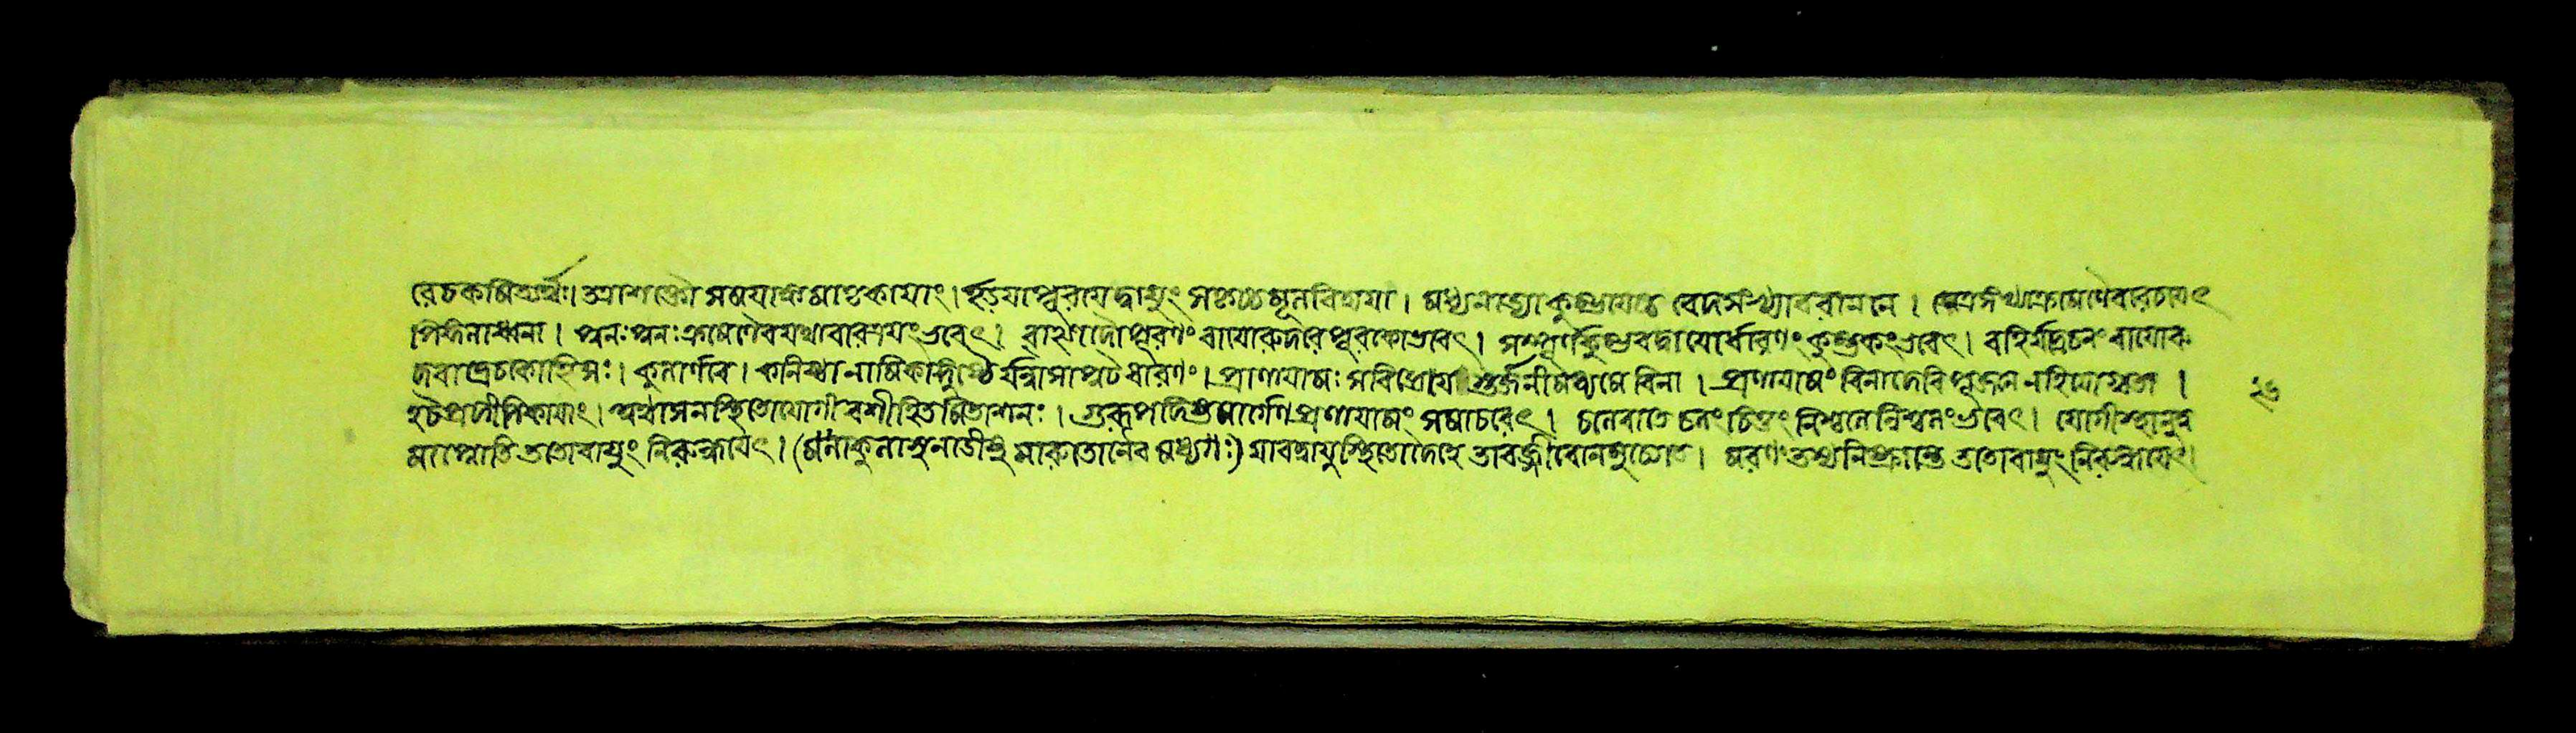 রেচকমিত্যর্থঃ। অশক্তৌ সময়াঙ্কমাতৃকায়াং। ইড়য়াপূরয়েদ্বায়ুং মূলবিদ্যয়া। মধ্যনাড্যা কুম্ভয়েচ্চ বেদসংখ্যাবরাননে।
পিঙ্গলাধ্বনা। পুনঃপুনঃক্রমেণৈবযথাবারত্রয়ংভবেৎ। বাহ্যাদাপূরণং বায়োরুদরেপূরকোভবেৎ। সম্পূর্ণকুম্ভবদ্বায়োর্ধারণং কুম্ভকংভবেৎ। বহির্যদ্রেচনং বায়োরু
দরাদ্রেচকোহিসঃ। কুলার্ণবে। কনিষ্ঠানামিকাঙ্গুষ্ঠৈর্যন্নাসাপুটধারণং। প্রাণায়ামঃ সবিজ্ঞেয়স্তর্জনীমধ্যমে বিনা। প্রাণায়ামং বিনাদেবি পূজনে নহিযোগ্যতা।
হঠপ্রদীপিকায়াং। অথাসনস্থিতোযোগী বশীহিতমিতাশনঃ। গুরূপদিষ্টমার্গেণ প্রাণায়ামং সমাচরেৎ। চলেবাতে চলংচিত্তং নিশ্চলেনিশ্চলংভবেৎ। যোগীস্থাণুত্ব
মাপ্নোতি ততোবায়ুং নিরুন্ধয়েৎ। (মলাকুলাসুনাড়ীষু মারুতোনৈব মধ্যগঃ) যাবদ্বায়ুস্থিতোদেহে তাবজ্জীবোনমুচ্যতে। মরণং তস্যনিষ্ক্রান্তি ততোবায়ুং নিরুন্ধয়েৎ।